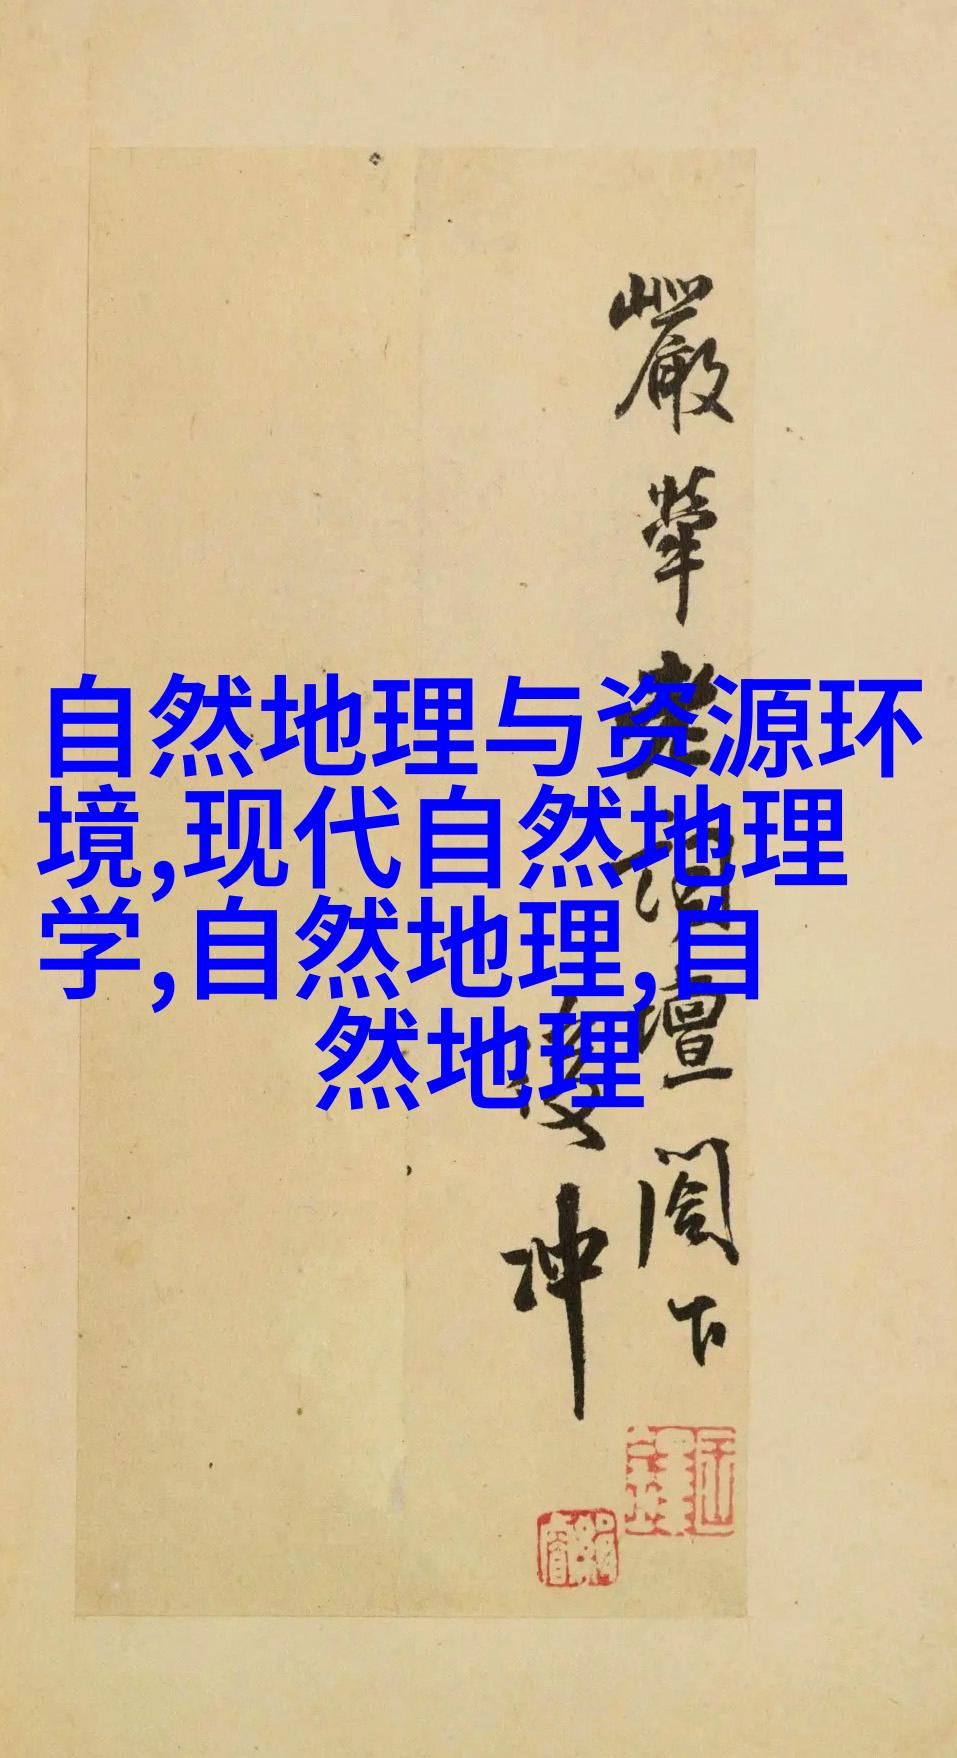 自然地理与资源环
境,现代自然地理
学,自然地理,自
然地理
嚴犖老詞壇閣下
後冲